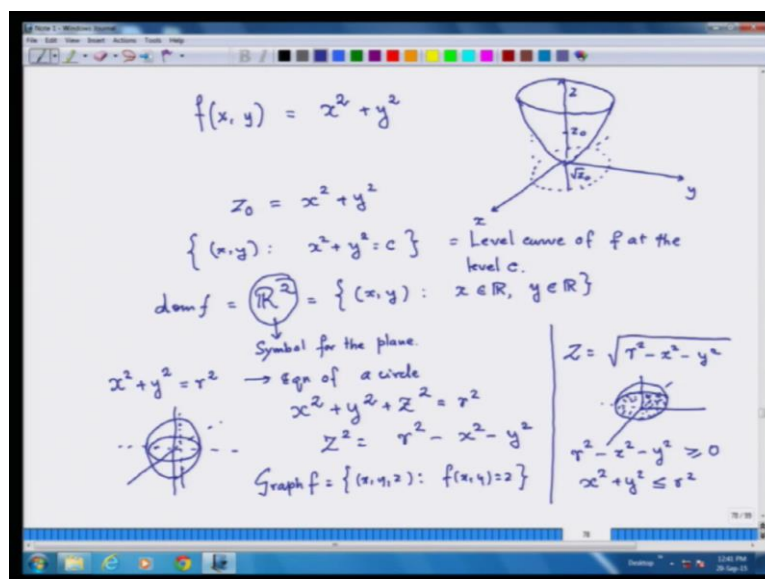 Note 1 - Windows Journal
File Edit View Insert Actions Tools Help
B I
f(x, y) = x² + y²
z
z₀
√z₀
y
x
z₀ = x² + y²
{ (x, y) : x² + y² = c } = Level curve of f at the
level c.
dom f = ℝ² = { (x, y) : x ∈ ℝ, y ∈ ℝ }
Symbol for the plane.
x² + y² = r² → Eqn of a circle
x² + y² + z² = r²
z² = r² - x² - y²
Graph f = { (x, y, z) : f(x, y) = z }
Z = √r² - x² - y²
r² - x² - y² ≥ 0
x² + y² ≤ r²
78 / 99
78
Desktop
12:41 PM
28-Sep-15